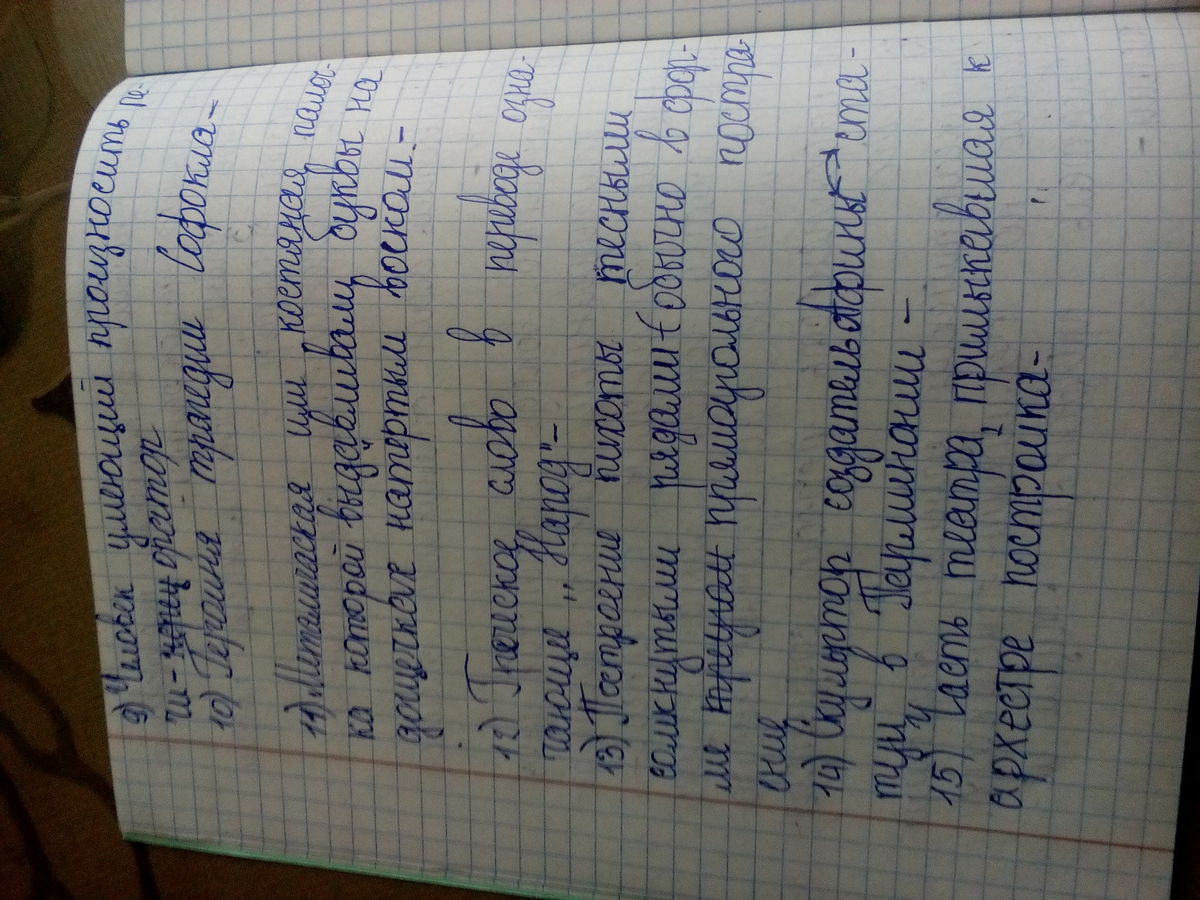 9) Человек умеющий произносить ре-
чи- оратор
10) Героиня трагедии Софокла-
11) Металическая или костяная палоч-
ка которой выдавливали буквы на
дощечках натертым воском.-
12) Греческое слово в переводе озна-
чающие ,,Народ"-
13) Построение пихоты тесными
сомкнутыми рядами- (обычно в фор-
ме прямоугольного построе
ение
14) Скульптор создатель Афины ста-
туи в Парминони -
15) Часть театра, примыкавшая к
архестре постройка-